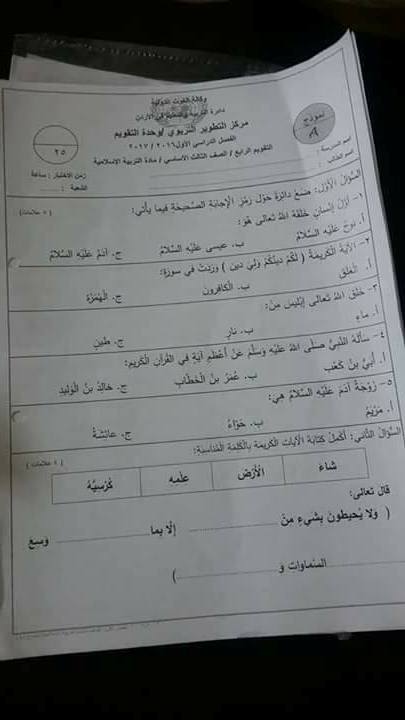 وكالة الغوث الدولية
دائرة التربية والتعليم في الأردن
مركز التطوير التربوي /وحدة التقويم
الفصل الدراسي الأول ٢٠١٦ / ٢٠١٧
التقويم الرابع / الصف الثالث الأساسي / مادة التربية الإسلامية
نموذج
A
٢٥
اسم المدرسة :
اسم الطالب :
زمن الاختبار : ساعة
الشعبة :
السُّؤالُ الأَوَّلُ: ضَعْ دائرةً حَوْلَ رَمْزِ الإجابَةِ الصَّحيحَةِ فيما يأتي:
( ٥ علامات )
١- أَوَّلُ إنسانٍ خَلَقَهُ اللهُ تعالى هُوَ:
أ. نوحٌ عَلَيْهِ السَّلامُ ب. عيسى عَلَيْهِ السَّلامُ ج. آدَمُ عَلَيْهِ السَّلامُ
٢- الآيَةُ الْكَريمَةُ ( لَكُمْ دينُكُمْ وَلِيَ دين ) وَرَدَتْ في سورَةِ:
أ. الْعَلَقِ ب. الْكافِرونَ ج. الْهُمَزَةِ
٣- خَلَقَ اللهُ تعالى إبْليسَ مِنْ:
أ. ماءٍ ب. نارٍ ج. طينٍ
٤- سَأَلَهُ النَّبِيُّ صَلّى اللهُ عَلَيْهِ وَسَلَّمَ عَنْ أَعْظَمِ آيَةٍ في القُرآنِ الْكَريمِ:
أ. أُبَيُّ بنُ كَعْبٍ ب. عُمَرُ بنُ الْخَطّابِ ج. خالِدُ بنُ الْوَليدِ
٥- زَوْجَةُ آدَمَ عَلَيْهِ السَّلامُ هِيَ:
أ. مَرْيَمُ ب. حَوّاءُ ج. عائِشَةُ
السُّؤالُ الثّاني: أُكْمِلُ كِتابَةَ الآياتِ الْكَريمَةِ بِالْكَلِمَةِ الْمُناسِبَةِ:
( ٤ علامات )
شاءَ الْأَرْضَ عِلْمِهِ كُرْسِيُّهُ
قال تعالى:
( وَلا يُحيطونَ بِشَيْءٍ مِنْ .................. إلّا بِما .................. وَسِعَ
.................. السَّماواتِ وَ .................. )